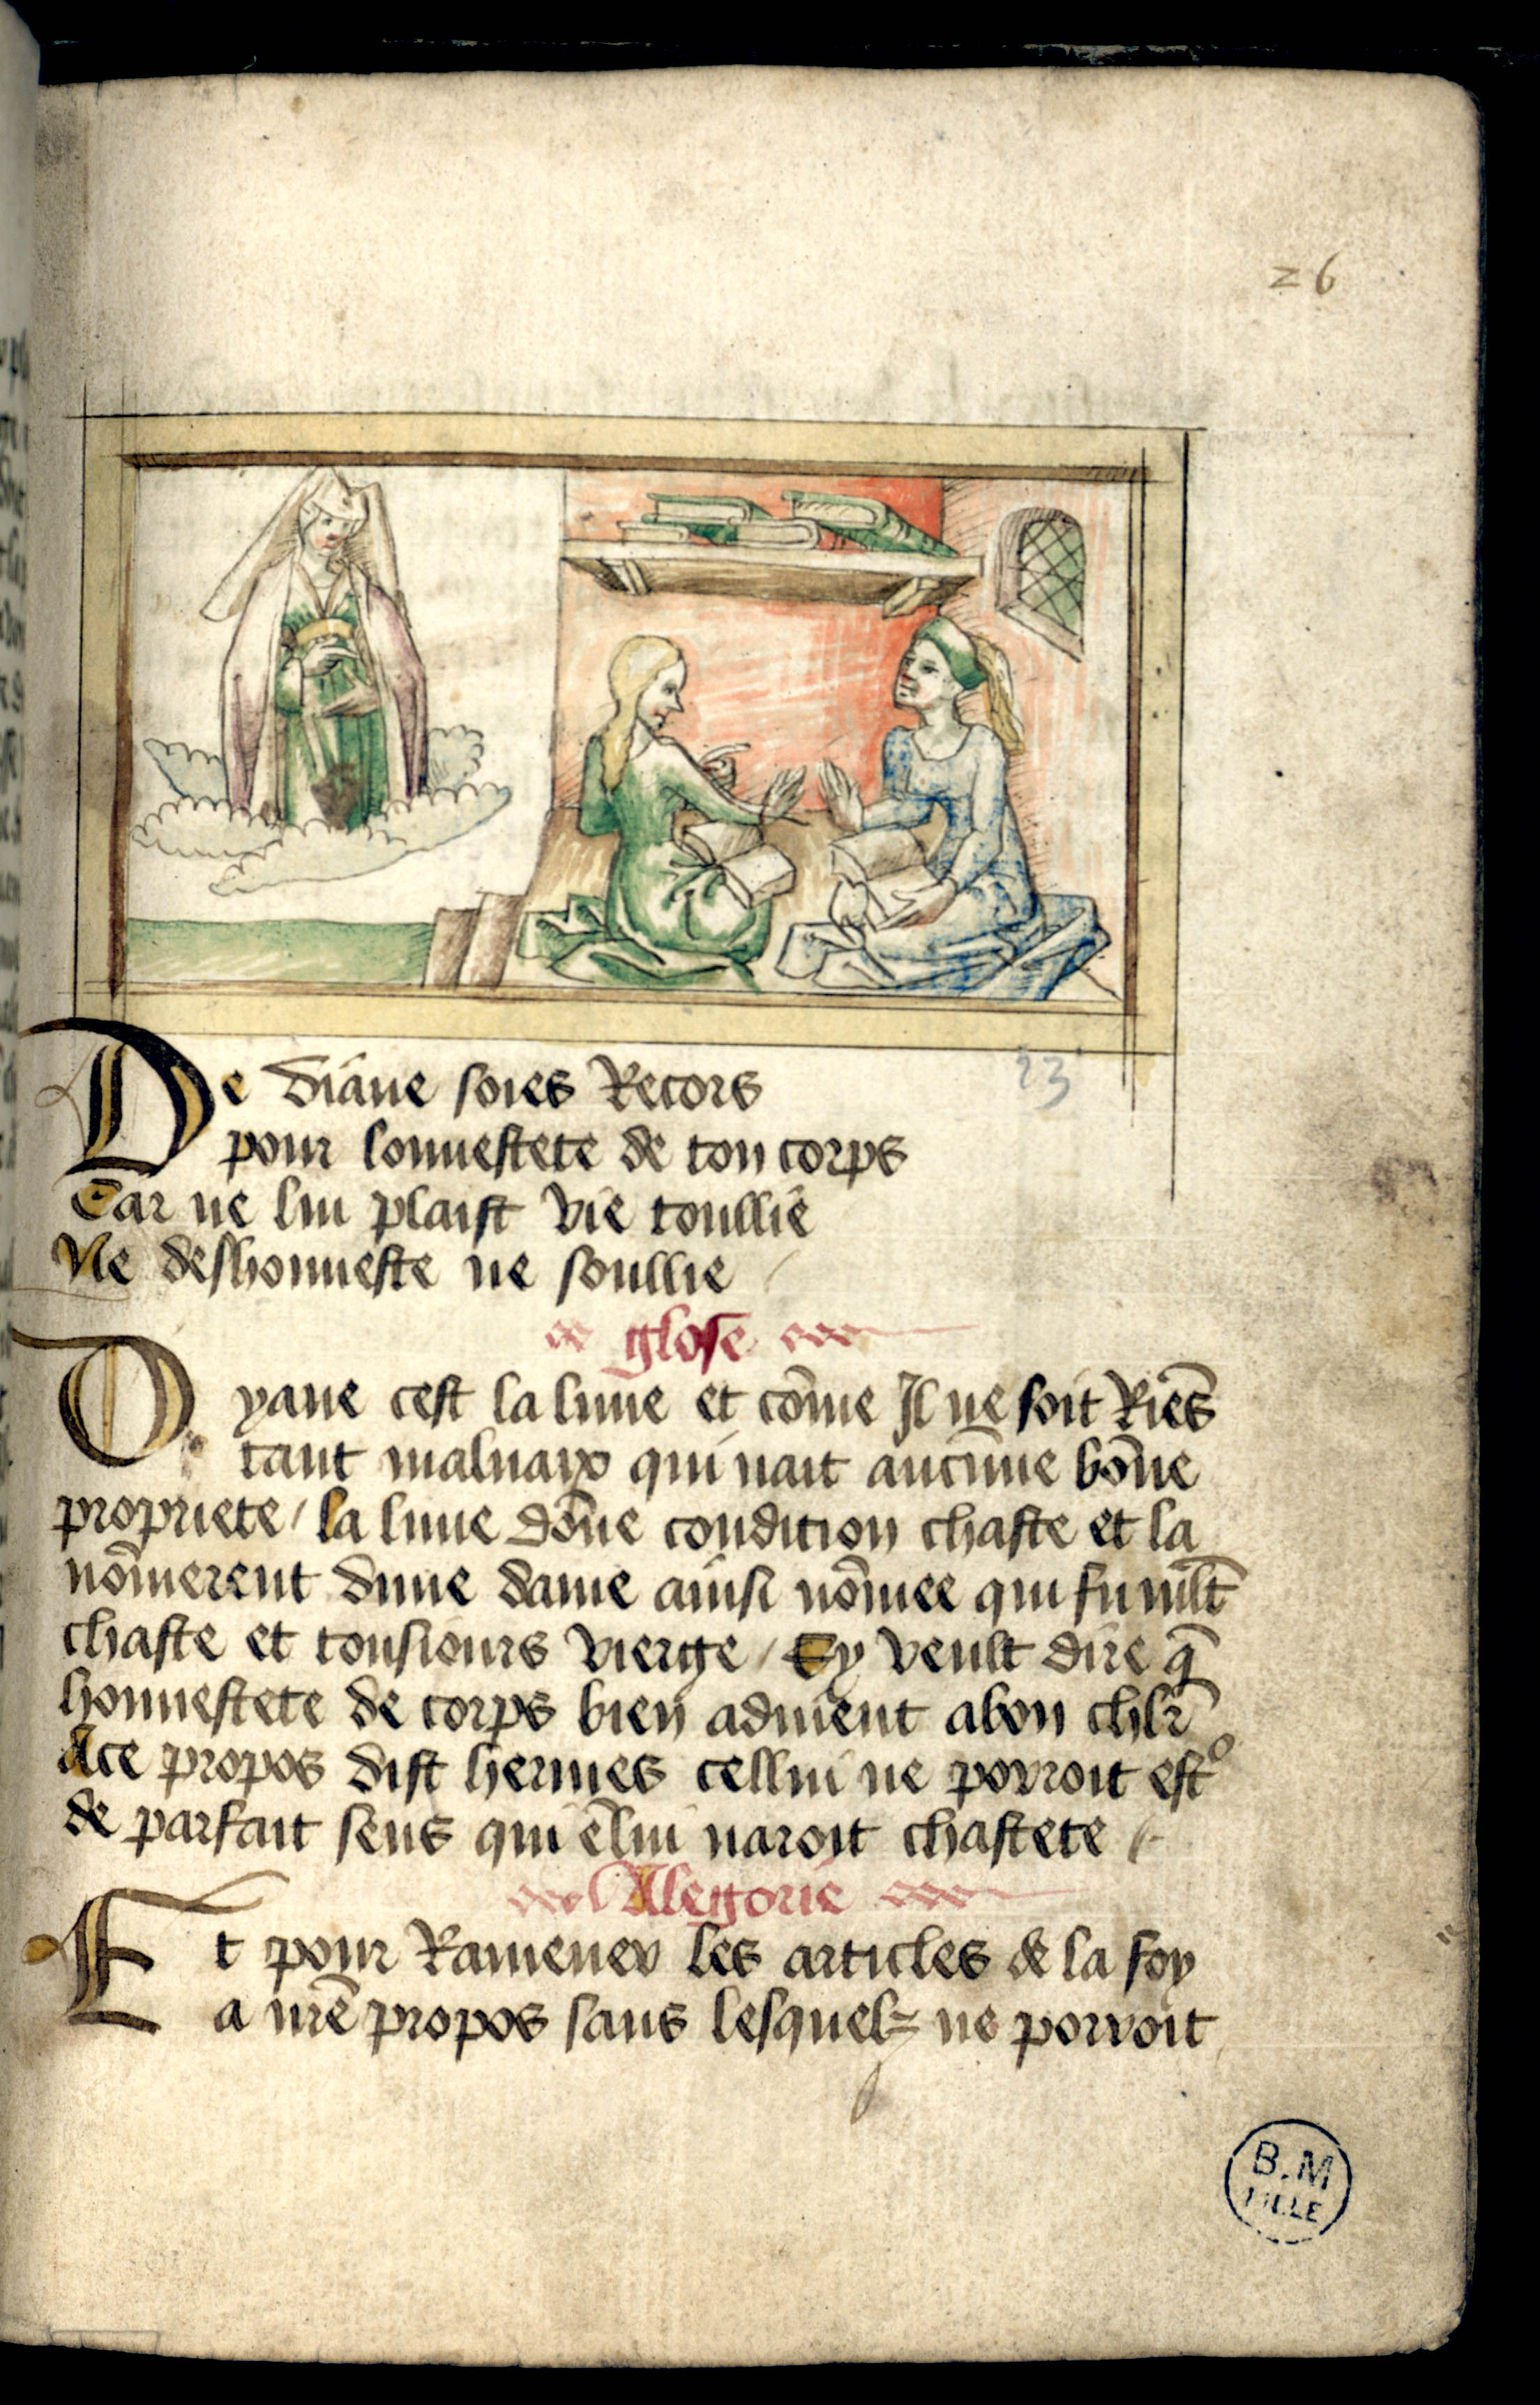 26
23
De diane soies Recors
pour lonnestete de ton corps
Car ne lui plaist vie toullie
Ne deshonneste ne soullie
glose
Dyane cest la lune et cōme Il ne soit Riēs
tant maluaix qui nait aucūne bōne
propriete / la lune dōne condition chaste et la
nōmerent dune dame ainsi nōmee qui fu mlt̄
chaste et tousiours vierge / Cy veult dire q̄
honnestete de corps bien aduient abon chlr̄
Ace propos dist hermes cellui ne povroit estꝰ
de parfait sens qui ēlui naroit chastete /
Alegorie
Et pour Ramener les articles de la foy
a nr̄e propos sans lesquelz ne porroit
B.M
LILLE